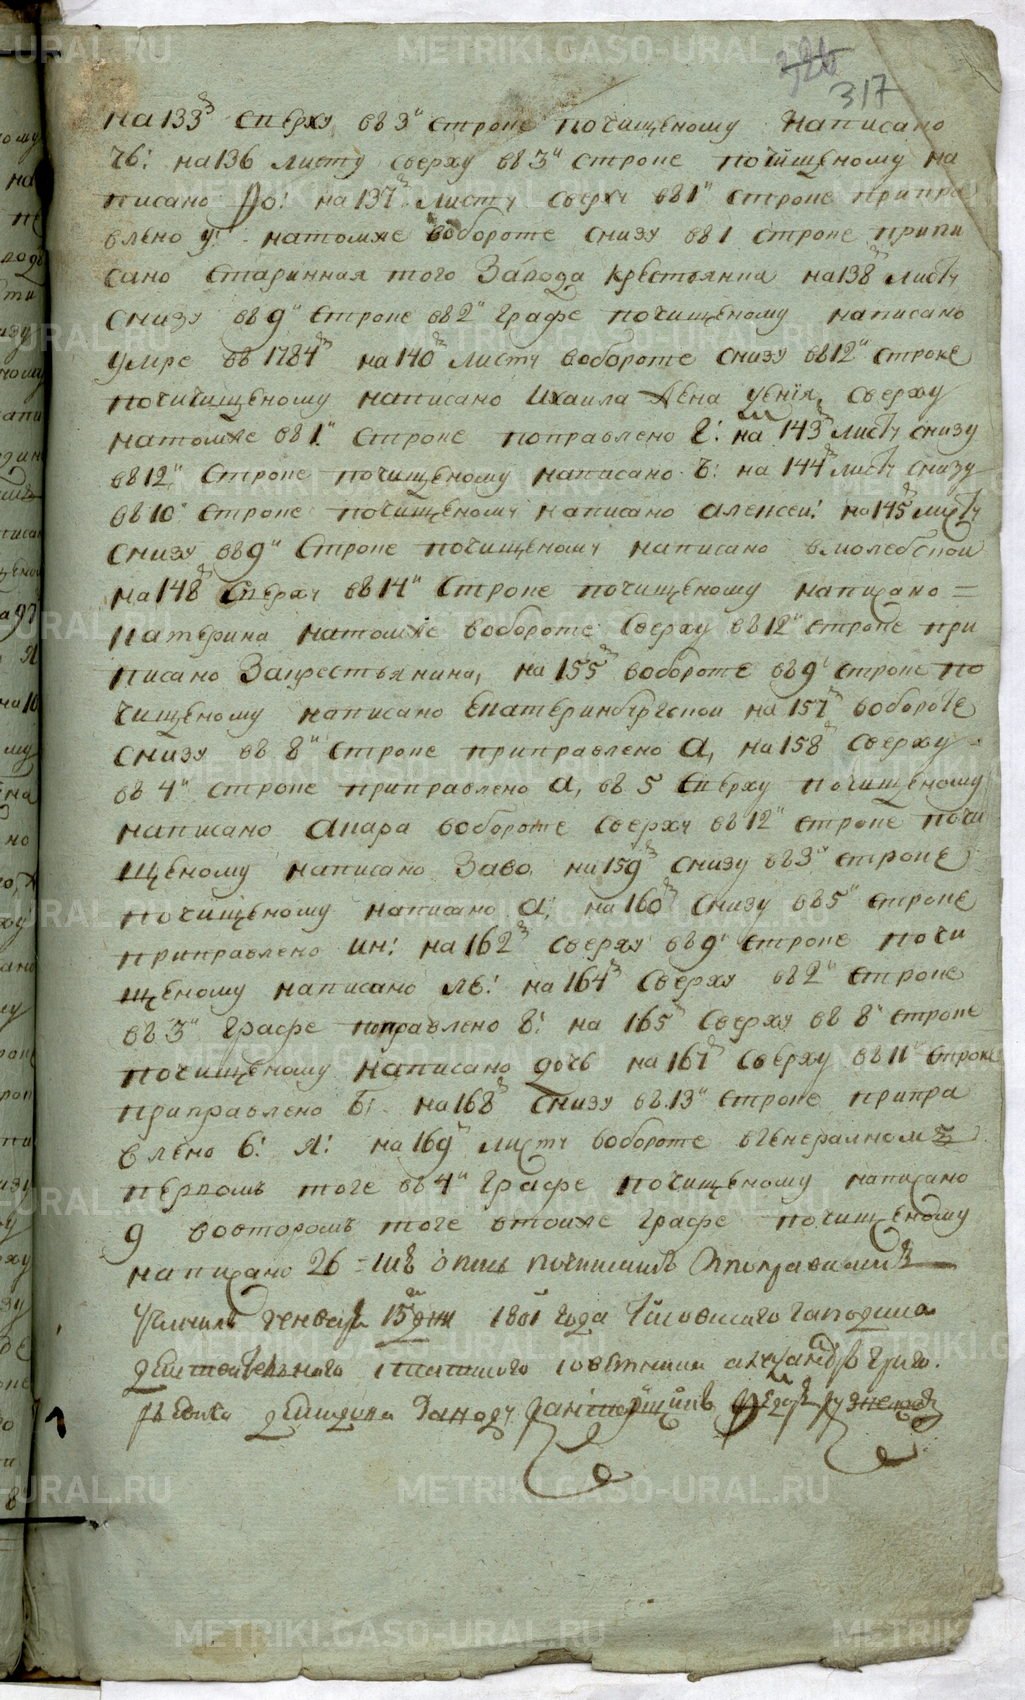 326
317
на 133м сверху въ 3й строке почищеному написано
чь: на 136 листу сверху въ 3й строке почищеному на
писано ро: на 137м листу сверху въ 1й строке припра
влено у: натомже вобороте снизу въ 1 строке припи
сано старинная того завода крестьянка на 138м листу
снизу въ 9й строке въ 2й графе почищеному написано
умре въ 1784м на 140м листу вобороте снизу въ 12й строке
почичищеному написано Ихаила сверху
натомже въ 1й строке поправлено на 143м листу снизу
въ 12й строке почищеному написано ъ: на 144м листу снизу
въ 10й строке почищеному написано алексей: на 145м листу
снизу въ 9й строке почищеному написано вмолебской
на 148м сверху въ 14й строке почищеному написано =
катерина натомже вобороте сверху въ 12й строке при
писано Закрестьянина, на 155м вобороте въ 9й строке по
чищеному написано екатеринбургской на 157м вобороте
снизу въ 8й строке приправлено а, на 158м сверху
въ 4й строке приправлено а, въ 5 сверху почищеному
написано вобороте сверху въ 12й строке почи
щеному написано Заво, на 159м снизу въ 3й строке
почищеному написано а: на 160м снизу въ 5й строке
приправлено ин: на 162м сверху въ 9й строке почи
щеному написано ль: на 164м сверху въ 2й строке
въ 3й графе поправлено 8: на 165м сверху въ 8й строке
почищеному написано дочь на 167м сверху въ 11й строке
приправлено на 168м снизу въ 13й строке припра
влено б: я: на 169м листу вобороте вгенералном
первомъ тоге въ 4й графе почищеному написано
9 вовторомъ тоге втойже графе почищеному
написано 26
генваря 15 дня 1801 года господина
действительного статского советника александра григо.
рьевича демидова Заводу